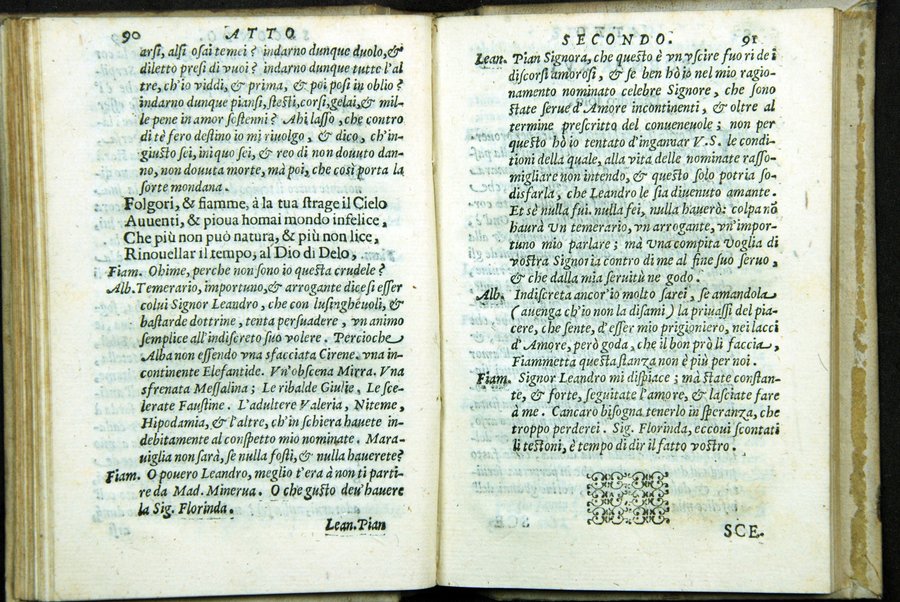 90 ATTO
arsi, alsi osai temei? indarno dunque duolo, &
diletto presi di vuoi? indarno dunque tutte l'al
tre, ch'io viddi, & prima, & poi posi in oblio?
indarno dunque piansi, stesti, corsi, gelai, & mil-
le pene in amor sostenni? Ahi lasso, che contro
di tè fero destino io mi riuolgo, & dico, ch'in-
giusto sei, iniquo sei, & reo di non douuto dan-
no, non douuta morte, mà poi, che così porta la
sorte mondana.
Folgori, & fiamme, à la tua strage il Cielo
Auuenti, & pioua homai mondo infelice,
Che più non può natura, & più non lice,
Rinouellar il tempo, al Dio di Delo,
Fiam. Ohime, perche non sono io questa crudele?
Alb. Temerario, importuno, & arrogante dicesi esser
colui Signor Leandro, che con lusingheuoli, &
bastarde dottrine, tenta persuadere, vn animo
semplice all'indiscreto suo volere. Percioche
Alba non essendo vna sfacciata Cirene. vna in-
continente Elefantide. Vn'obscena Mirra. Vna
sfrenata Messalina; Le ribalde Giulie. Le sce-
lerate Faustine. L'adultere Valeria, Niteme,
Hipodamia, & l'altre, ch'in schiera hauete in-
debitamente al conspetto mio nominate. Mara-
uiglia non sarà, se nulla fosti, & nulla hauerete?
Fiam. O pouero Leandro, meglio t'era à non ti parti-
re da Mad. Minerua. O che gusto deu' hauere
la Sig. Florinda.
Lean. Pian
SECONDO. 91
Lean. Pian Signora, che questo è vn vscire fuori de i
discorsi amorosi, & se ben hò io nel mio ragio-
namento nominato celebre Signore, che sono
state serue d'Amore incontinenti, & oltre al
termine prescritto del conueneuole; non per
questo hò io tentato d'ingannar V.S. le condi-
tioni della quale, alla vita delle nominate rasso-
migliare non intendo, & questo solo potria so-
disfarla, che Leandro le sia diuenuto amante.
Et sè nulla fui. nulla fei, nulla hauerò: colpa nō
haurà vn temerario, vn arrogante, vn'impor-
tuno mio parlare; mà vna compita voglia di
vostra Signoria contro di me al fine suo seruo,
& che dalla mia seruitù ne godo.
Alb. Indiscreta ancor'io molto sarei, se amandola
(auenga ch'io non la disami) la priuassi del pia-
cere, che sente, d'esser mio prigioniero, nei lacci
d'Amore, però goda, che il bon prò li faccia,
Fiammetta questa stanza non è più per noi.
Fiam. Signor Leandro mi dispiace; mà state constan-
te, & forte, seguitate l'amore, & lasciate fare
à me. Cancaro bisogna tenerlo in speranza, che
troppo perderei. Sig. Florinda, eccoui scontati
li testoni, è tempo di dir il fatto vostro.
SCE-